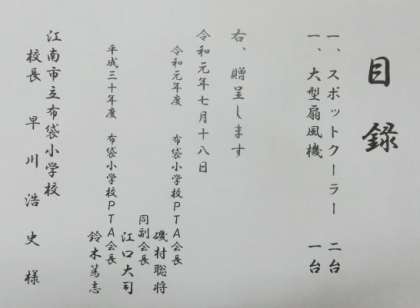 目録
一、スポットクーラー 二台
一、大型扇風機 一台
右、贈呈します
令和元年七月十八日
令和元年度 布袋小学校PTA会長
磯村聡将
同副会長
江口大司
平成三十年度 布袋小学校PTA会長
鈴木篤志
江南市立布袋小学校
校長 早川浩史様